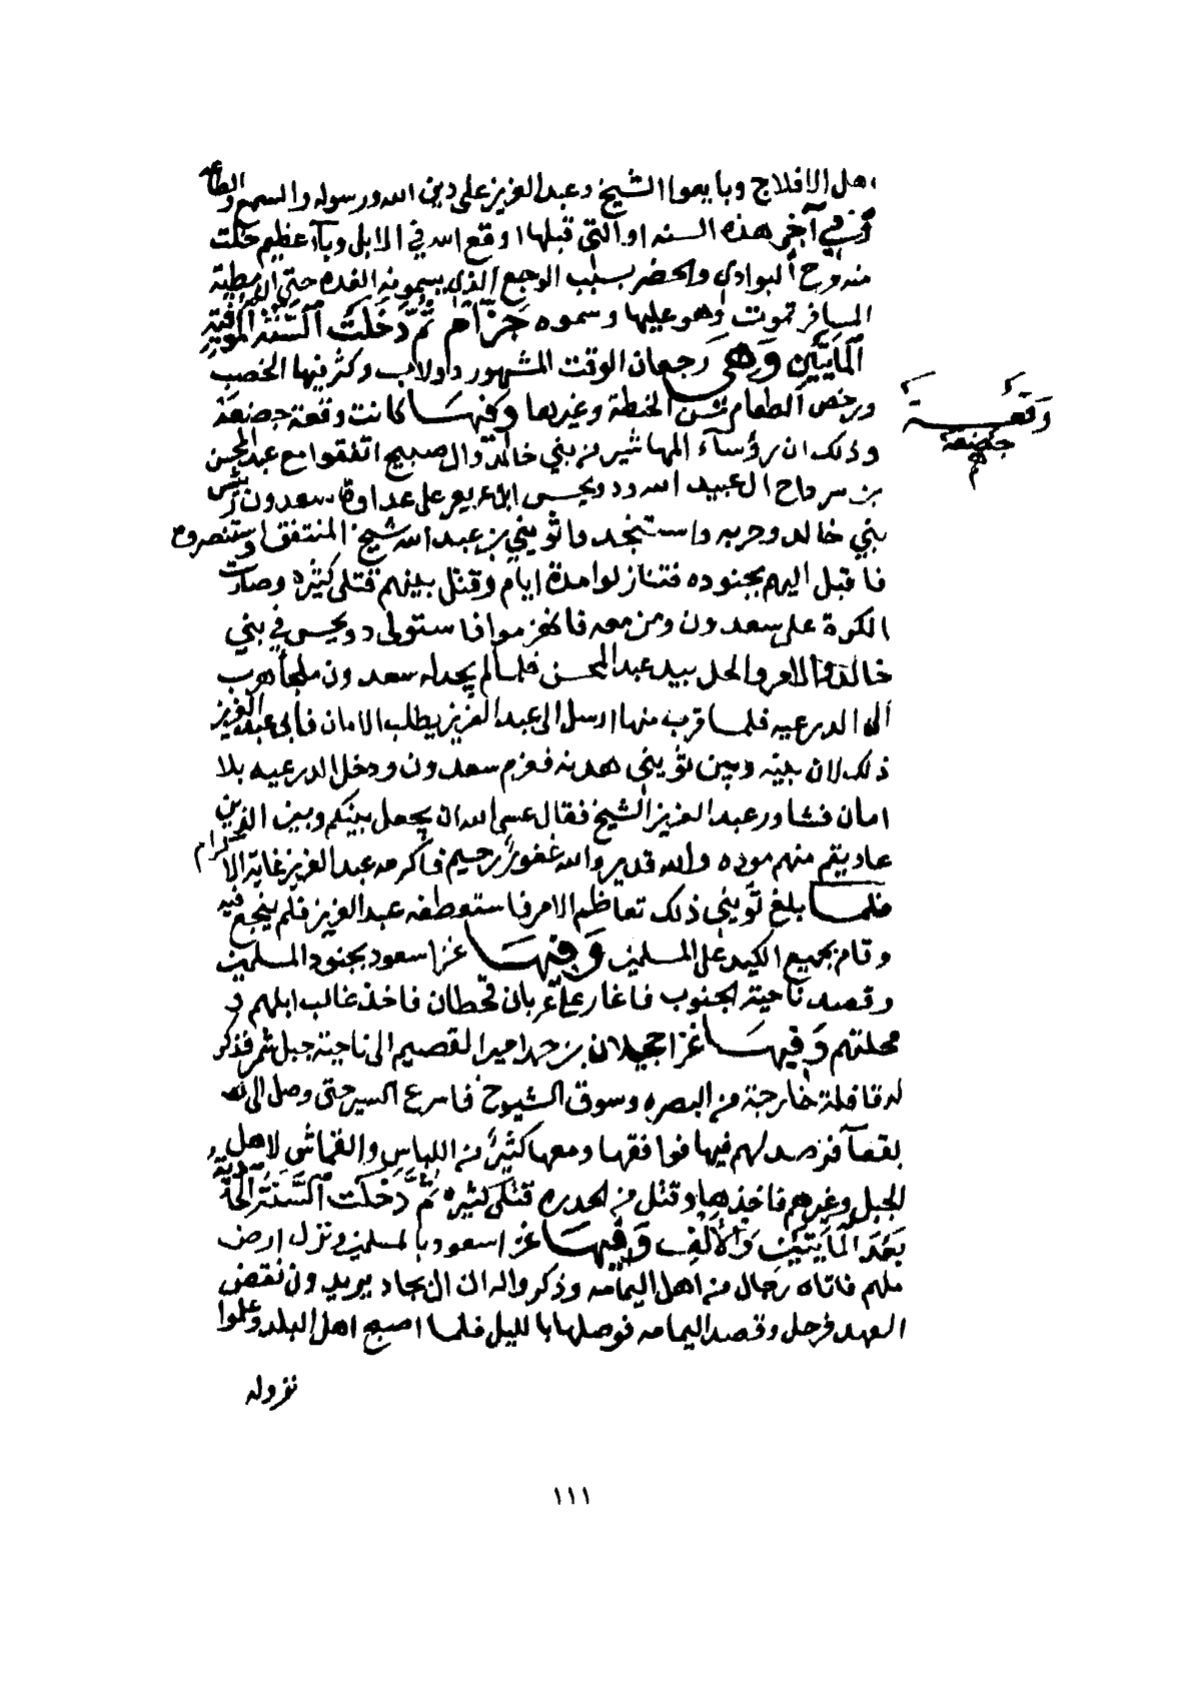 اهل الافلاج وبايعوا الشيخ وعبد العزيز على دين الله ورسوله والسمع والطاعه
وفي آخر هذه السنه او التي قبلها اوقع الله في الابل وبآ عظيم خلت
منه مرح البوادي والحضر بسبب الوجع الذي يسمونه الغده حتى ان مطية
المسافر تموت وهو عليها وسموه جزام ثم دخلت السنة الموفية
المايتين وهي رجعان الوقت المشهور دولاب وكثر فيها الخصب
ورخص الطعام من الحنطة وغيرها وفيها كانت وقعة جضعة
وقعة
جضعة
وذلك ان رؤسآء المهاشير من بني خالد وال صبيح اتفقوا مع عبد المحسن
بن سرداح ال عبيد الله ودويحس ابن عريعر على عداوة سعدون رئيس
بني خالد وحربه واستنجدوا ثويني بن عبد الله شيخ المنتفق واستنصروه
فاقبل اليهم بجنوده فتنازلوا مدة ايام وقتل بينهم قتلى كثيره وصارت
الكرة على سعدون ومن معه فانهزموا فاستولى دويحس في بني
خالد والامر والحل بيد عبد المحسن فلما لم يجد له سعدون ملجأ هرب
الى الدرعيه فلما قرب منها ارسل الى عبد العزيز يطلب الامان فأبى عبد العزيز
ذلك لان بينه وبين ثويني هدنه فعزم سعدون ودخل الدرعيه بلا
امان فشاور عبد العزيز الشيخ فقال عسى الله ان يجعل بينكم وبين الذين
عاديتم منهم موده والله قدير والله غفور رحيم فاكرمه عبد العزيز غاية الاكرام
فلما بلغ ثويني ذلك تعاظم الامر فاستعطفه عبد العزيز فلم ينجع فيه
وقام بجميع الكيد على المسلمين وفيها غزا سعود بجنود المسلمين
وقصد ناحية الجنوب فاغار على عربان قحطان فاخذ غالب ابلهم و
محلتهم وفيها غزا حجيلان بن حمد امير القصيم الى ناحية جبل شمر فذكر
له قافلة خارجة من البصره وسوق الشيوخ فاسرع السير حتى وصل الى
بقعآ فرصد لهم فيها فوافقها ومعها كثير من اللباس والقماش لاهل
الجبل وغيرهم فاخذها وقتل من الحدره قتلى كثيره ثم دخلت السنة الحادية
بعد المايتين والالف وفيها غزا سعود بالمسلمين ونزل ارض
ملهم فاتاه رجال من اهل اليمامه وذكروا له ان ال بجاد يريدون نقض
العهد فرحل وقصد اليمامه فوصلها بالليل فلما اصبح اهل البلد وعلموا
نزوله
١١١